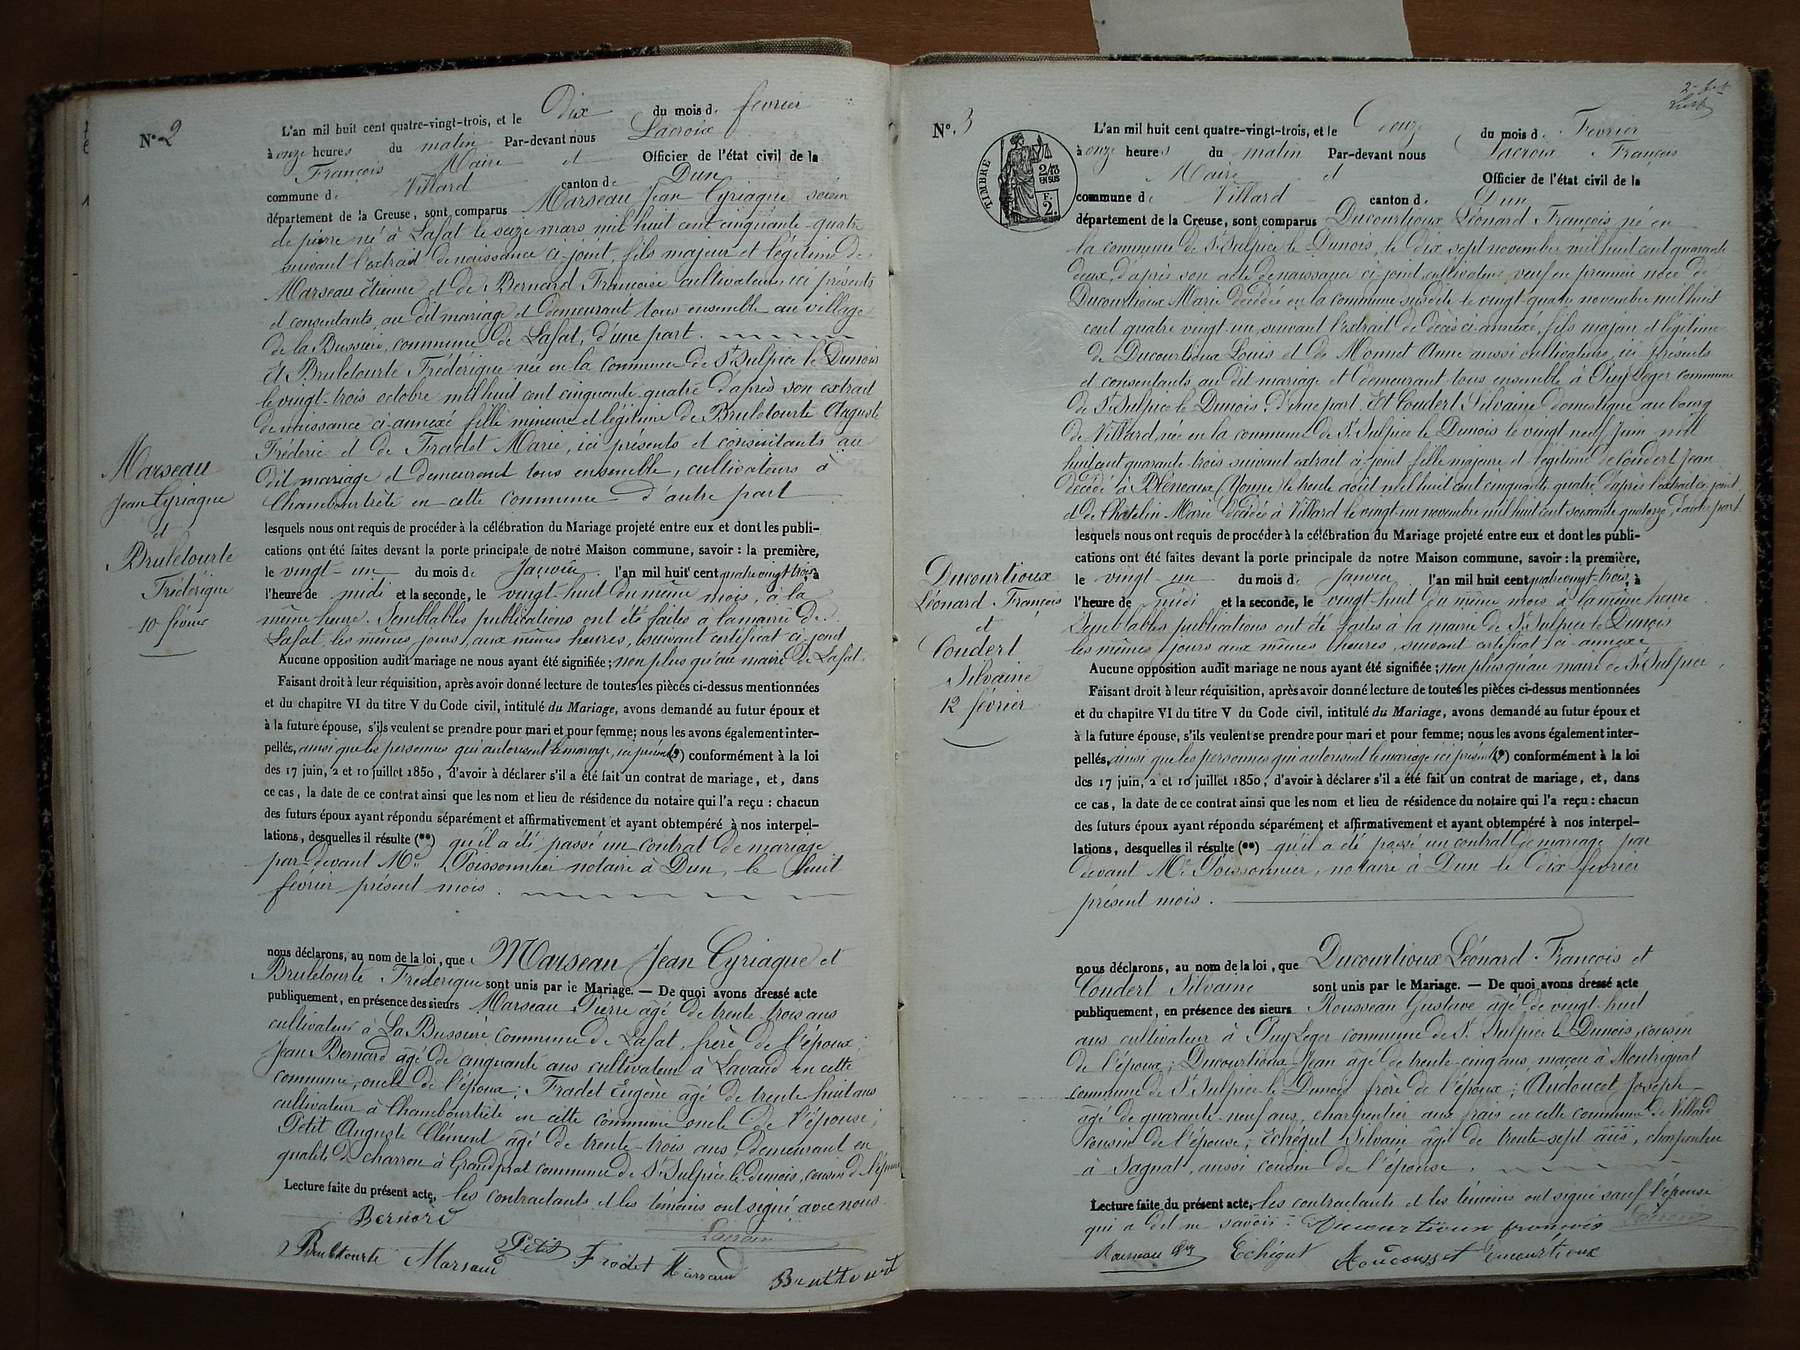 N° 2
L'an mil huit cent quatre-vingt-trois, et le Dix du mois de février
à onze heures du matin Par-devant nous Lacroix
François Maire et Officier de l'état civil de la
commune de Villard canton de Dun
département de la Creuse, sont comparus Marseau Jean Cyriaque
de pierre né à Lafat le seize mars mil huit cent cinquante-quatre
suivant l'extrait de naissance ci-joint, fils majeur et légitime de
Marseau Etienne et de Bernard Françoise cultivateurs, ici présents
et consentants au dit mariage et demeurant tous ensemble au village
de la Bussière, commune de Lafat, d'une part.
Et Bruletourte Frédérique née en la commune de St Sulpice le Dunois
le vingt-trois octobre mil huit cent cinquante quatre d'après son extrait
de naissance ci-annexé fille mineure et légitime de Bruletourte Auguste
Fréderic et de Fradet Marie, ici présents et consentants au
dit mariage et demeurant tous ensemble, cultivateurs à
Chambourtiète en cette commune d'autre part
Marseau
Jean Cyriaque
et
Bruletourte
Frédérique
10 février
lesquels nous ont requis de procéder à la célébration du Mariage projeté entre eux et dont les publi-
cations ont été faites devant la porte principale de notre Maison commune, savoir : la première,
le vingt-un du mois de Janvier l'an mil huit cent quatre vingt-trois, à
l'heure de midi et la seconde, le vingt-huit du même mois, à la
même heure. Semblables publications ont été faites à la mairie de
Lafat, les mêmes jours, aux mêmes heures, suivant certificat ci-joint
Aucune opposition audit mariage ne nous ayant été signifiée ; non plus qu'au maire de Lafat.
Faisant droit à leur réquisition, après avoir donné lecture de toutes les pièces ci-dessus mentionnées
et du chapitre VI du titre V du Code civil, intitulé du Mariage, avons demandé au futur époux et
à la future épouse, s'ils veulent se prendre pour mari et pour femme; nous les avons également inter-
pellés, ainsi que les personnes qui autorisent le mariage, ici présents (*) conformément à la loi
des 17 juin, 2 et 10 juillet 1850, d'avoir à déclarer s'il a été fait un contrat de mariage, et, dans
ce cas, la date de ce contrat ainsi que les nom et lieu de résidence du notaire qui l'a reçu : chacun
des futurs époux ayant répondu séparément et affirmativement et ayant obtempéré à nos interpel-
lations, desquelles il résulte (**) qu'il a été passé un contrat de mariage
par devant Me Poissonnier notaire à Dun, le huit
février présent mois.
nous déclarons, au nom de la loi, que Marseau Jean Cyriaque et
Bruletourte Frédérique sont unis par le Mariage. — De quoi avons dressé acte
publiquement, en présence des sieurs Marseau Pierre âgé de trente trois ans
cultivateur à La Bussière commune de Lafat, frère de l'époux;
Jean Bernard âgé de cinquante ans cultivateur à Lavaud en cette
commune, oncle de l'époux; Fradet Eugène âgé de trente huit ans
cultivateur à Chambourtiète en cette commune oncle de l'épouse;
Petit Auguste Clément âgé de trente-trois ans, demeurant en
qualité de charron à Grandprat commune de St Sulpice le dunois, cousin de l'épouse
Lecture faite du présent acte, les contractants et les témoins ont signé avec nous.
Bernard
Lacroix
Bruletourte Marseau Petit Fradet Marseau Bruletourte
2
N° 3
TIMBRE
2/10 EN SUS
F. 2.
L'an mil huit cent quatre-vingt-trois, et le Douze du mois de Février
à onze heures du matin Par-devant nous Lacroix François
Maire et Officier de l'état civil de la
commune de Villard canton de Dun
département de la Creuse, sont comparus Ducourtioux Léonard François né en
la commune de St Sulpice le Dunois, le dix sept novembre mil huit cent quarante
deux, d'après son acte de naissance ci-joint, cultivateur, veuf en première noce de
Ducourtioux Marie décédée en la commune susdite le vingt-quatre novembre mil huit
cent quatre vingt-un, suivant l'extrait de décès ci-annexé, fils majeur et légitime
de Ducourtioux Louis et de Monnet Anne aussi cultivateurs, ici présents
et consentants au dit mariage et demeurant tous ensemble à Puy Leger commune
de St Sulpice le Dunois. d'une part. Et Coudert Silvaine domestique au bourg
de Villard, née en la commune de St Sulpice le Dunois le vingt neuf Juin mil
huit cent quarante-trois suivant extrait ci-joint fille majeure et légitime de Coudert Jean
décédé à Bléneaux (Yonne) le trente août mil huit cent cinquante quatre, d'après l'extrait ci-joint
et de Chatelin Marie décédée à Villard le vingt-un novembre mil huit cent soixante quatorze, d'autre part.
Ducourtioux
Léonard François
et
Coudert
Silvaine
12 février
lesquels nous ont requis de procéder à la célébration du Mariage projeté entre eux et dont les publi-
cations ont été faites devant la porte principale de notre Maison commune, savoir : la première,
le vingt-un du mois de Janvier l'an mil huit cent quatre vingt-trois, à
l'heure de midi et la seconde, le vingt huit du même mois à la même heure.
Semblables publications ont été faites à la mairie de St Sulpice le Dunois
les mêmes jours aux mêmes heures, suivant certificat ci-annexé
Aucune opposition audit mariage ne nous ayant été signifiée ; non plus qu'au maire de St Sulpice.
Faisant droit à leur réquisition, après avoir donné lecture de toutes les pièces ci-dessus mentionnées
et du chapitre VI du titre V du Code civil, intitulé du Mariage, avons demandé au futur époux et
à la future épouse, s'ils veulent se prendre pour mari et pour femme; nous les avons également inter-
pellés, ainsi que les personnes qui autorisent le mariage ici présents (*) conformément à la loi
des 17 juin, 2 et 10 juillet 1850, d'avoir à déclarer s'il a été fait un contrat de mariage, et, dans
ce cas, la date de ce contrat ainsi que les nom et lieu de résidence du notaire qui l'a reçu : chacun
des futurs époux ayant répondu séparément et affirmativement et ayant obtempéré à nos interpel-
lations, desquelles il résulte (**) qu'il a été passé un contrat de mariage par
devant Me Poissonnier, notaire à Dun le dix février
présent mois.
nous déclarons, au nom de la loi, que Ducourtioux Léonard François et
Coudert Silvaine sont unis par le Mariage. — De quoi avons dressé acte
publiquement, en présence des sieurs Rousseau Gustave âgé de vingt huit
ans cultivateur à Puy Leger commune de St Sulpice le Dunois, cousin
de l'époux; Ducourtioux Jean âgé de trente-cinq ans, maçon à Montrignat
commune de St Sulpice le Dunois frère de l'époux; Audoucet Joseph
âgé de quarante neuf ans, charpentier aux frais en cette commune de Villard
cousin de l'épouse; Echégut Silvain âgé de trente sept ans, charpentier
à Sagnat, aussi cousin de l'épouse.
Lecture faite du présent acte, les contractants et les témoins ont signé sauf l'épouse
qui a dit ne savoir. Ducourtieux françois Lacroix
Rousseau Echégut Aoudousset Ducourtioux